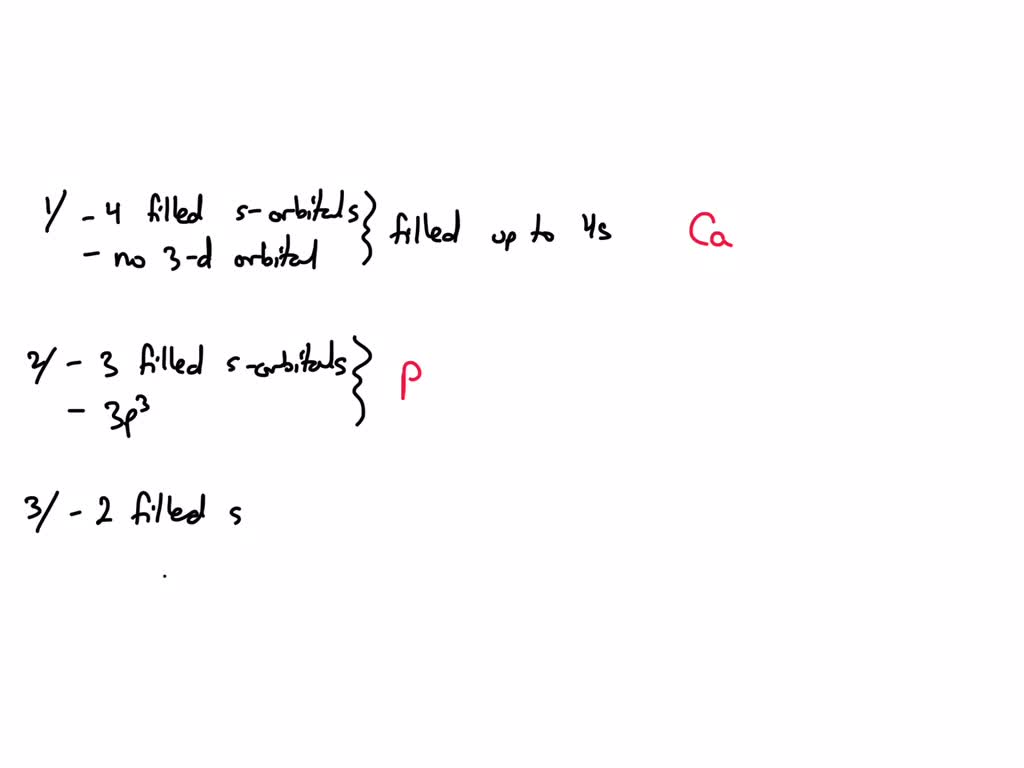 1/ - 4 filled s-orbitals } filled up to 4s Ca
- no 3-d orbital
2/ - 3 filled s-orbitals } P
- 3p³
3/ - 2 filled s